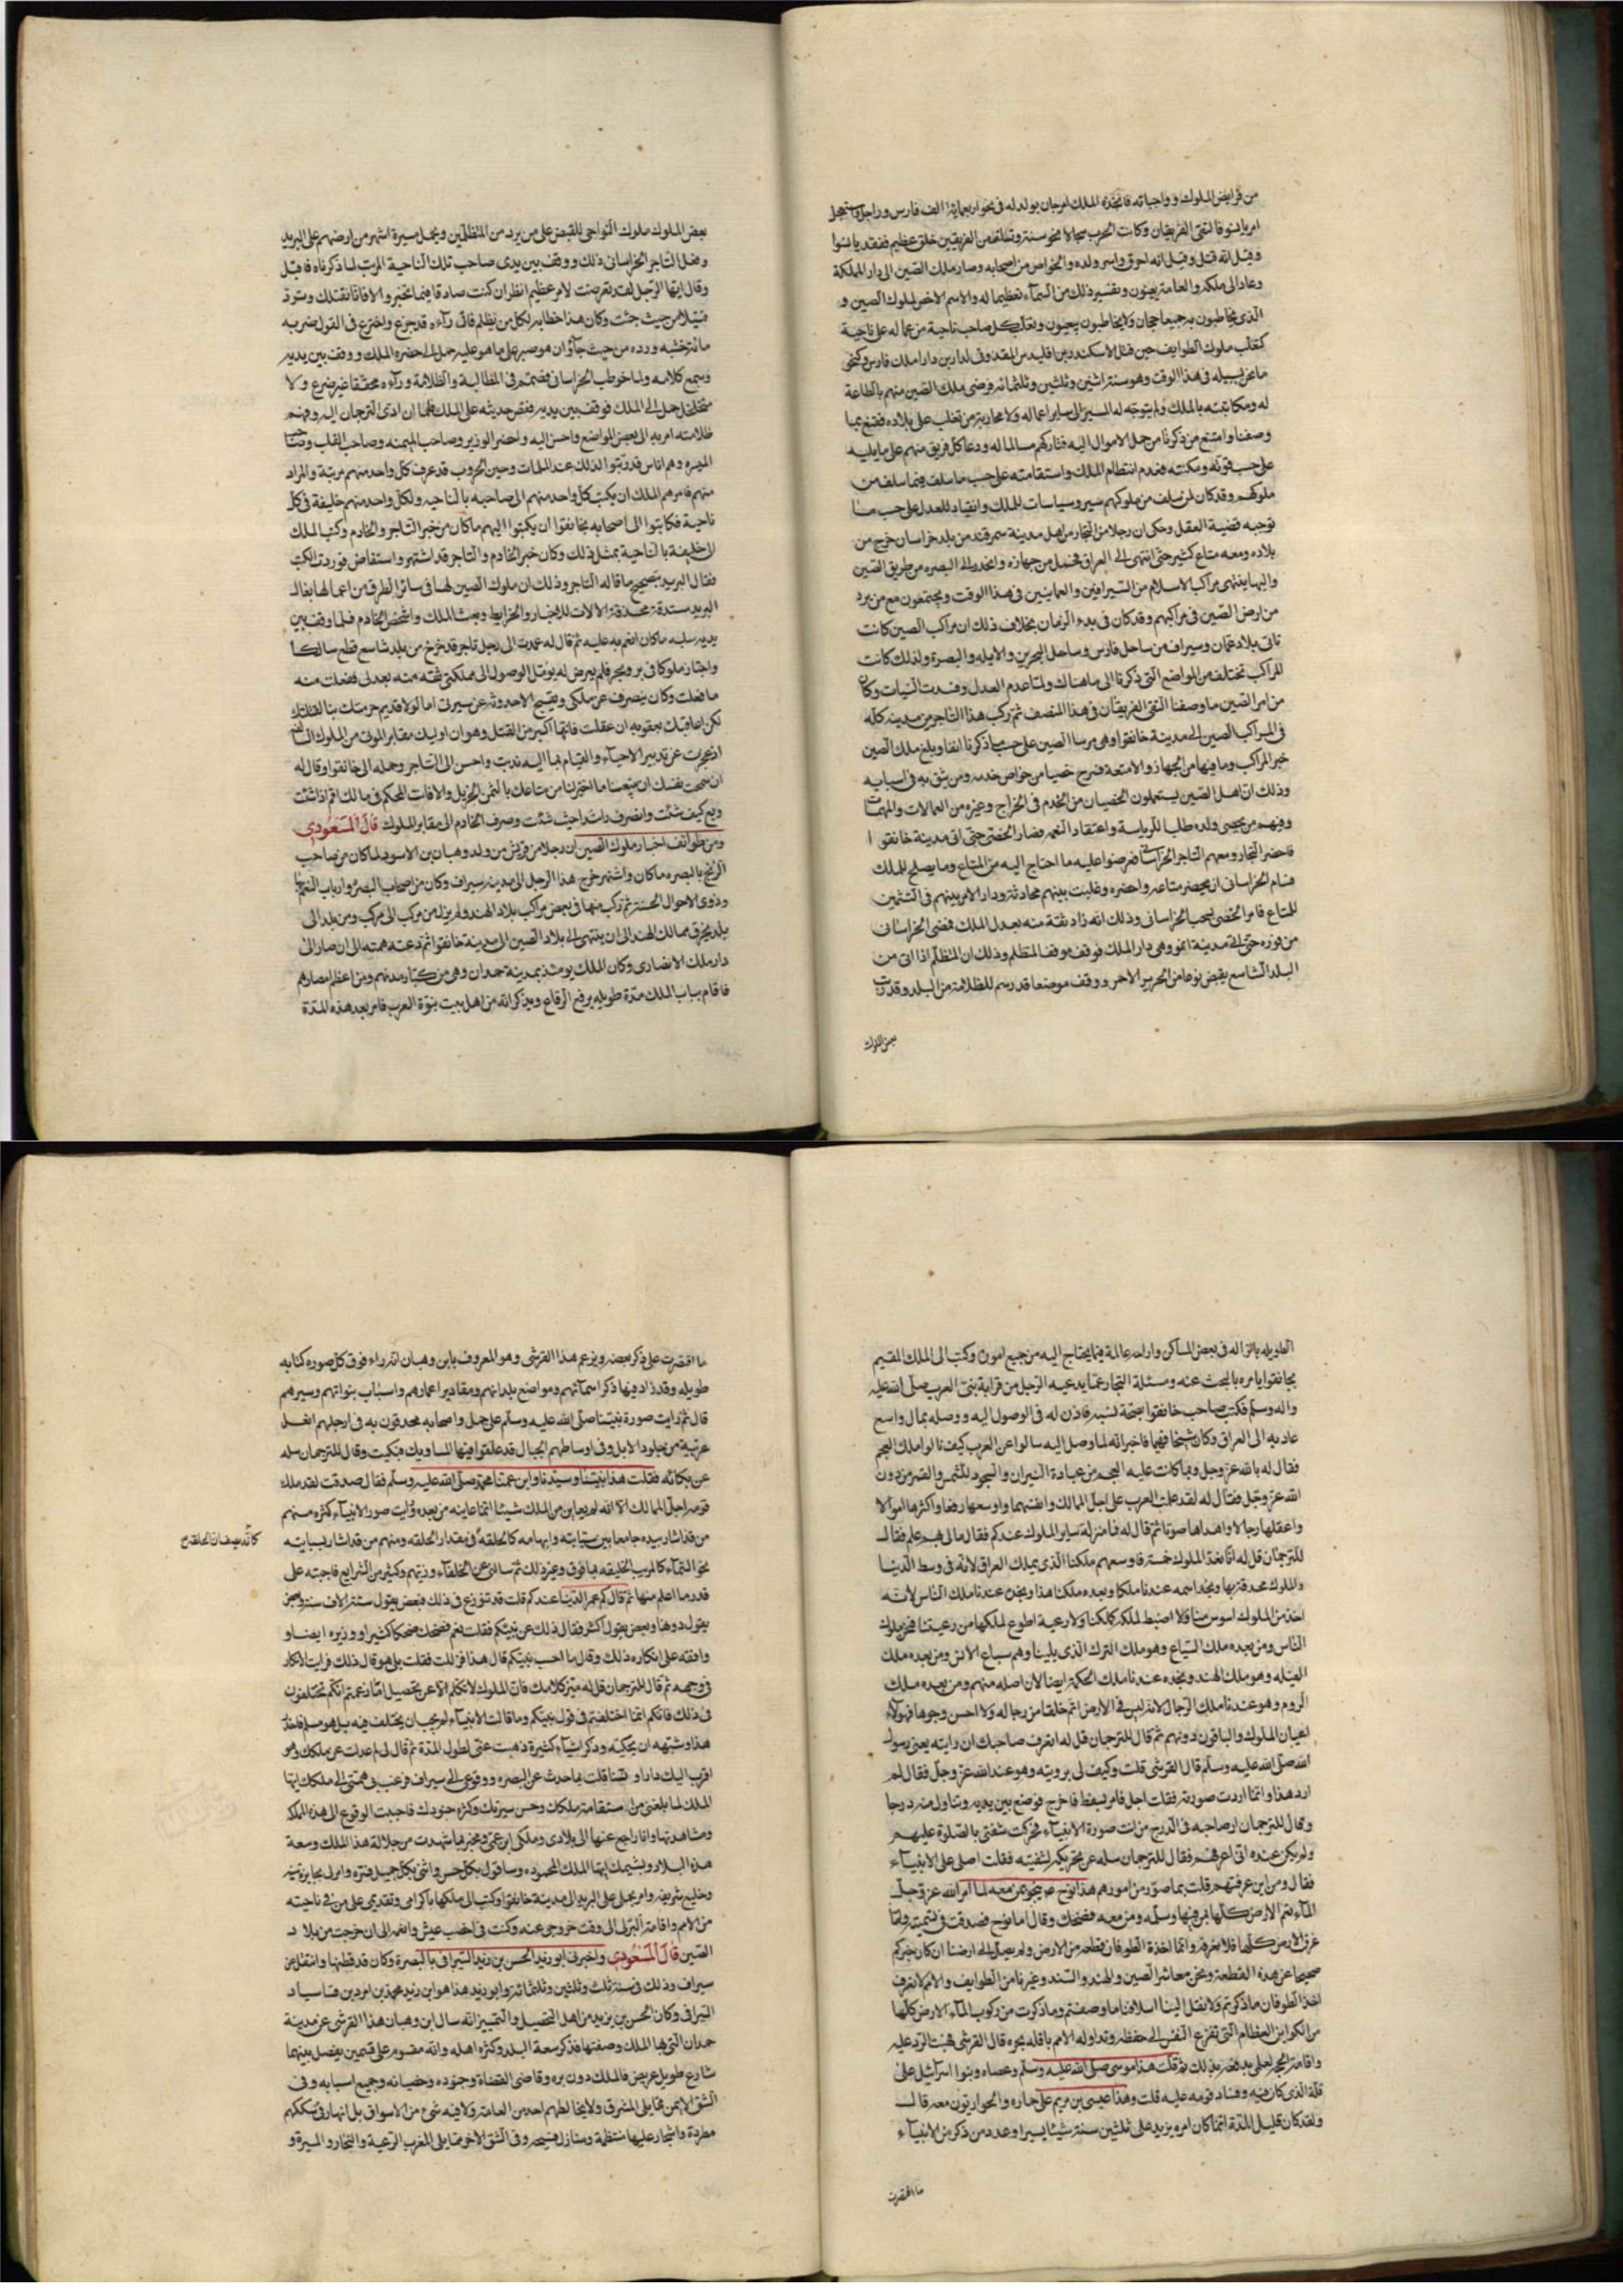 من فرايض الملوك وواجباته فانجده الملك ابرجان بولد له في نحو اربعمائة الف فارس وراجل واستعجل
امر يانسو فالتقى الفريقان وكانت الحرب سجالا نحو سنة وتفانى من الفريقين خلق عظيم ففقد يانسوا
وقيل انه قتل وقيل انه احرق واسر ولده والخواص من اصحابه وصار ملك الصين الى دار المملكة
وعاد الى ملكه والعامة يعبون وتفسير ذلك من السماء تعظيما له والاسم الاخص لملوك الصين و
الذي يخاطبون به جميعا جحان ولا يخاطبون يعبون وتغلب كل صاحب ناحية من عماله على ناحيته
كتغلب ملوك الطوايف حين قتل الاسكندر بن اقليدس المقدوني لدارا بن دارا ملك فارس وكنحو
ما نحن بسبيله في هذا الوقت وهو سنة اثنتين وثلثين وثلثمائه فرضي ملك الصين منهم بالطاعة
له ومكاتبته بالملك ولم يتوجه له المسير الى ساير اعماله ولا محاربة من تغلب على بلاده فقنع بما
وصفنا وامتنع من ذكرنا من حمل الاموال اليه فتاركهم مسالما له ودعا كل فريق منهم على ما يليه
على حسب قوته ومكنته فعدم انتظام الملك واستقامته على حسب ما سلف فيما سلف من
ملوكهم وقد كان لمن سلف من ملوكهم سير وسياسات للملك وانقياد للعدل على حسب ما
توجبه قضية العقل وحكى ان رجلا من التجار من اهل مدينة سمرقند من بلد خراسان خرج من
بلاده ومعه متاع كثير حتى انتهى الى العراق فحمل من جهازه وانحدر الى البصره من طريق الصين
واليها ينتهى مراكب الاسلام من السيرافين والعمانيين في هذا الوقت ويجتمعون مع من يرد
من ارض الصين في مراكبهم وقد كان في بدء الزمان بخلاف ذلك ان مراكب الصين كانت
تاتي بلاد عمان وسيراف من ساحل فارس وساحل البحرين والابله والبصرة ولذلك كانت
المراكب تختلف من المواضع التي ذكرنا الى ما هناك ولما عدم العدل وفسدت النيات وكان
من امر الصين ما وصفنا التقى الفريقان في هذا المنصف ثم ركب هذا التاجر من مدينه كله
في المراكب الصين الى مدينة خانفوا وهي مرسا الصين على حسب ما ذكرنا انفا وبلغ ملك الصين
خبر المراكب وما فيها من الجهاز والامتعة فسرح خصيا من خواص خدمه ومن يثق به في اسبابه
وذلك ان اهل الصين يستعملون الخصيان من الخدم في الخراج وغيره من العمالات والمهمات
وفيهم من يخصي ولده طلبا للرياسة واعتقاد النعم فصار الخصي حتى اتى مدينة خانفوا
فاحضر التجار ومعهم التاجر الخراساني فعرضوا عليه ما احتاج اليه من المتاع وما يصلح للملك
فسام الخراساني ان يحضر متاعه واحضره وغلبت بينهم محادثة ودار الامر بينهم في التثمين
للمتاع فامر الخصي بسجن الخراساني وذلك انه زاد ثقة منه بعدل الملك فمضى الخراساني
من فوره حتى اتى مدينة انمو وهي دار الملك فوقف موقف المتظلم وذلك ان المتظلم اذا اتى من
البلد الشاسع يقبض نوعا من الحرير الاحمر ووقف موضعا قد رسم للظلامة من البلد وقد رتب
بعض الملوك
بعض الملوك ملوك النواحي للقبض على من يرد من المتظلمين ويحمل مسيرة اشهر من ارضهم على البريد
وفعل التاجر الخراساني ذلك ووقف بين يدي صاحب تلك الناحية المرتب لما ذكرناه فاقبل
وقال ايها الرجل لقد تعرضت لامر عظيم انظر ان كنت صادقا فيما تخبر والا فانا نقتلك وترد
قتيلا من حيث جئت وكان هذا خطابه لكل من تظلم فان رآه قد جزع واخترع في القول ضربه
مائة خشبه ورده من حيث جآء وان هو صبر على ما هو عليه حمل الى حضره الملك ووقف بين يديه
وسمع كلامه ولما خوطب الخراساني فصمم في المطالبة والظلامة ورآوه محققا غير ضرع ولا
متخلخل حمل الى الملك فوقف بين يديه فقص حديثه على الملك فلما ان ادى الترجمان اليه وفهم
ظلامته امر به الى بعض المواضع واحسن اليه واحضر الوزير وصاحب الميمنه وصاحب القلب وصاحب
الميسره وهم اناس قد رتبوا لذلك عند الملمات وحين الحروب قد عرف كل واحد منهم مرتبته والمراد
منهم فامرهم الملك ان يكتب كل واحد منهم الى صاحبه بالناحيه ولكل واحد منهم خليفة في كل
ناحية فكاتبوا الى اصحابه بخانفوا ان يكتبوا اليهم ما كان من خبر التاجر والخادم وكتب الملك
الى خليفته بالناحية بمثل ذلك وكان خبر الخادم والتاجر قد اشتهر واستفاض فوردت الكتب
فقال البريد بتصحيح ما قاله التاجر وذلك ان ملوك الصين لها في سائر الطرق من اعمالها بغال
البريد مستدقة محذفة الالات للاخبار والخرايط وبعث الملك واشخص الخادم فلما وقف بين
يديه سلبه ما كان انعم به عليه ثم قال له عمدت الى رجل تاجر قد خرج من بلد شاسع قطع مسالكا
واجتاز ملوكا في بر وبحر فلم يعرض له يؤمل الوصول الى مملكتي ثقة منه بعدلي ففعلت منه
ما فعلت وكان ينصرف عن ملكي ويقبح الاحدوثه عن سيرتي اما لولا قديم حرمتك بنا لقتلتك
لكن اعاقبك بعقوبه ان عقلت فانها اكبر من القتل وهو ان اوليك مقابر الموتى من الملوك السالفه
اذ عجزت عن تدبير الاحياء والقيام بما اليه ندبت واحسن الى التاجر وحمله الى خانفوا وقال له
ان سمحت نفسك ان تبيعنا ما اخترنا من متاعك بالثمن الجزيل والا فانت المحكم في مالك اقم اذا شئت
وبع كيف شئت وانصرف راشدا حيث شئت وصرف الخادم الى مقابر الملوك قال المسعودي
ومن طرائف اخبار ملوك الصين ان رجلا من قريش من ولد وهبان بن الاسود لما كان من صاحب
الزنج بالبصره ما كان واشتهر خرج هذا الرجل الى مدينه سيراف وكان من اصحاب البصره وارباب النعم بها
وذوي الاحوال الحسنة ثم ركب منها في بعض مراكب بلاد الهند ولم يزل من مركب الى مركب ومن بلد الى
بلد يخرق ممالك الهند الى ان ينتهى الى بلاد الصين الى مدينة خانفوا ثم دعته همته الى ان صار الى
دار ملك الانصارى وكان الملك يومئذ بمدينة حمدان وهي من كبار مدنهم ومن اعظم امصارهم
فاقام بباب الملك مدة طويله يرفع الرقاع ويذكر انه من اهل بيت نبوة العرب فامر بعد هذه المدة
الطويله بانزاله في بعض المساكن وازاحه عالمة فيما يحتاج اليه من جميع اموره وكتب الى الملك المقيم
بخانفوا يامره بالبحث عنه ومسئلة التجار عما يدعيه الرجل من قرابة نبي العرب صلى الله عليه
واله وسلم فكتب صاحب خانفوا بصحة نسبه فاذن له في الوصول اليه ووصله بمال واسع
عاد به الى العراق وكان شيخا فهما فاخبر انه لما وصل اليه سالوا عن العرب كيف نالوا ملك العجم
فقال له بالله عز وجل وبما كانت عليه العجم من عبادة النيران والسجود للشمس والقمر من دون
الله عز وجل فقال له لقد غلبت العرب على اجل الممالك وانفسها واوسعها ريعا واكثرها اموالا
واعقلها رجالا واهداها صوتا ثم قال له فما منزلة ساير الملوك عندكم فقال مالي بهم علم فقال
للترجمان قل له انا نعد الملوك خمسة فاوسعهم ملكا الذي يملك العراق لانه في وسط الدنيا
والملوك محدقة بها ونجد اسمه عندنا ملكا وبعده ملكنا هذا ونجده عندنا ملك الناس لانه
احد من الملوك اسوس منا ولا اضبط لملكه كملكنا ولا رعية اطوع لملكها من رعيتنا فنحن ملوك
الناس ومن بعده ملك السباع وهو ملك الترك الذي يلينا وهم سباع الانس ومن بعده ملك
الفيله وهو ملك الهند ونجده عندنا ملك الحكمة ايضا لان اصله منهم ومن بعده ملك
الروم وهو عندنا ملك الرجال لانه ليس في الارض اتم خلقا من رجاله ولا احسن وجوها فهولاء
اعيان الملوك والباقون دونهم ثم قال للترجمان قل له اتعرف صاحبك ان رايته يعني رسول
الله صلى الله عليه وسلم قال القرشي قلت وكيف لي برويته وهو عند الله عز وجل فقال لم
ارد هذا وانما اردت صورته فقلت اجل فامر بسفط فاخرج فوضع بين يديه وتناول منه درجا
وقال للترجمان اره صاحبه في الدرج من رات صورة الانبيآء فحركت شفتي بالصلوة عليهم
ولم يكن عنده اني اعرفهم فقال للترجمان سله عن تحريكه لشفتيه فقلت اصلي على الانبيآء
فقال ومن اين عرفتهم قلت بما صور من امورهم هذا نوح في سفينته ينجو بمن معه لما امر الله عز وجل
المآء فعم الارض كلها بمن فيها وسلمه ومن معه فضحك وقال اما نوح فصدقت في تسميته واما
غرق الارض كلها فلا نعرفه وانما اخذ الطوفان قطعه من الارض ولم يصل الى ارضنا ان كان خبركم
صحيحا عن هذه القطعة ونحن معاشر الصين والهند والسند وغيرنا من الطوايف والامم لا نعرف
اخذ الطوفان ما ذكرتم ولا نقل الينا اسلافنا ما وصفتم وما ذكرت من ركوب المآء الارض كلها
من الكواين العظام التي تفزع النفس الى حفظه وتداوله الامم ناقله بخبره قال القرشي فهبت الرد عليه
واقامة الحجه لعلمي بدفعه بذلك ثم قلت هذا موسى صلى الله عليه وسلم وعصاه وبنوا اسرائيل على
قلة الذي كان فيه وفساد قومه عليه قلت وهذا عيسى بن مريم على حماره والحواريون معه قال
ولقد كان قليل المدة انما كان امره يزيد على ثلثين سنة شيئا يسيرا وعدد من ذكر من الانبيآء
ما اقتصرت
ما اقتصرت على ذكر بعضه ويزعم هذا القرشي وهو المعروف بابن وهبان انه راى فوق كل صوره كتابه
طويله وقد زاد فيها ذكر اسمائهم ومواضع بلدانهم ومقادير اعمارهم واسباب نبواتهم وسيرهم
قال ثم رايت صورة نبينا صلى الله عليه وسلم على جمل واصحابه محدقون به في ارجلهم انعل
عربية من جلود الابل وفي اوساطهم الحبال قد علقوا فيها المساويك فبكيت وقال للترجمان سله
عن بكائه فقلت هذا نبينا وسيدنا وابن عمنا محمد صلى الله عليه وسلم فقال صدقت لقد ملك
قومه اجل الممالك الا انه لم يعاين من الملك شيئا انما عاينه من بعده ورايت صور الانبيآء كثره منهم
من قد اشار بيده جامعا بين سبابته وابهامه كالحلقه في مقدار الحلقه ومنهم من قد اشار بسبابته
كانه يصف ان الخلقة صح
نحو السماء كالمرهب للخليقه بما فوق وغير ذلك ثم سالني عن الخلفاء وزيهم وكثير من الشرايع فاجبته على
قدر ما اعلم منها ثم قال كم عمر الدنيا عندكم قلت قد تنوزع في ذلك فبعض يقول ستة الاف سنة وبعض
يقول دونها وبعض يقول اكثر فقال ذلك عن نبيكم فقلت نعم فضحك ضحكا كثيرا ووزيره ايضا و
وافقته على انكاره ذلك وقال ما احسب نبيكم قال هذا فزللت فقلت بلى هو قال ذلك فرايت الانكار
في وجهه ثم قال للترجمان قل له ميز كلامك فان الملوك لا تكلم الا عن تحصيل اما زعمتم انكم تختلفون
في ذلك فانكم انما اختلفتم في قول نبيكم وما قالت الانبيآء لم يجب ان يختلف فيه بل هو مسلم فاحذر
هذا وشبهه ان يحكيه وذكر اشيآء كثيرة ذهبت عني لطول المدة ثم قال لي لم عدلت عن ملكك وهو
اقرب اليك دارا ونسبا قلت بما حدث عن البصره ووقوعي الى سيراف فرغبت بي همتي الى ملكك ايها
الملك لما بلغني من استقامة ملكك وحسن سيرتك وكثره جنودك فاحببت الوقوع الى هذه المملكه
ومشاهدتها وانا راجع عنها الى بلادي وملكي ابن عمي ومخبر بما شهدت من جلالة هذا الملك وسعة
هذه البلاد وبشيمك ايها الملك المحموده وساقول بكل حسن واثني بكل جميل فسره وامر لي بجايزة سنيه
وخلع شريفه وامر بحملي على البريد الى مدينة خانفوا وكتب الى ملكها باكرامي وتقديمي على من في ناحيته
من الامم واقامة النزل لي الى وقت خروجي عنه وكنت في اخصب عيش وانعمه الى ان خرجت من بلاد
الصين قال المسعودي واخبرني ابو زيد الحسن بن يزيد السيرافي بالبصرة وكان قد قطنها وانتقل عن
سيراف وذلك في سنة ثلث وثلثين وثلثمائة وابو زيد هذا هو ابن يزيد محمد بن امرد بن فاسياد
السيرافي وكان الحسن بن يزيد من اهل التحصيل والتمييز انه سال ابن وهبان هذا القرشي عن مدينة
حمدان التي بها الملك وصفتها فذكر سعة البلد وكثره اهله وانه مقسوم على قسمين يفصل بينهما
شارع طويل عريض فالملك دون بره وقاضي القضاة وجنوده وخصيانه وجميع اسبابه وفي
الشق الايمن مما يلي المشرق ولا يخالطهم احد من العامة ولا فيه شئ من الاسواق بل انهار في سككهم
مطرده واشجار عليها منتظمة ومنازل فسيحه وفي الشق الاخر مما يلي المغرب الرعية والتجار والميرة و